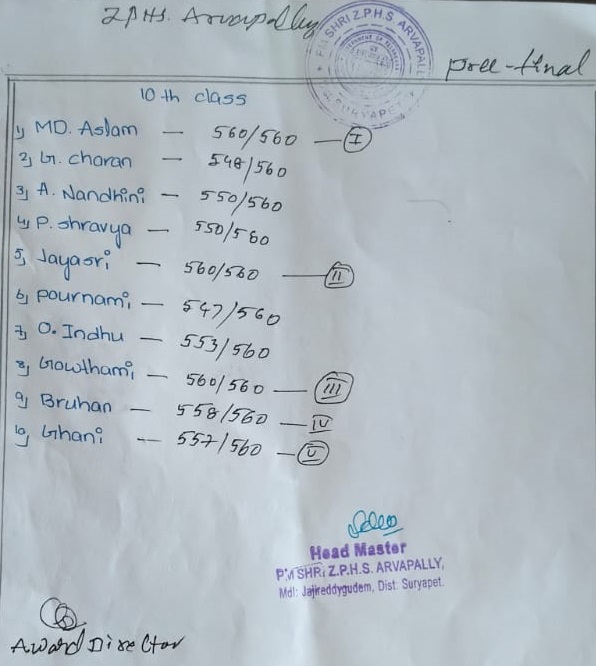 Z.P.H.S. Arvapally
PM SHRI Z.P.H.S. ARVAPALLY
SURYAPET
pree-final
10 th class
1) MD. Aslam — 560/560 — I
2) G. charan — 548/560
3) A. Nandhini — 550/560
4) P. shravya — 550/560
5) Jayasri — 560/560 — II
6) pournami — 547/560
7) O. Indhu — 553/560
8) Gowthami — 560/560 — III
9) Bruhan — 558/560 — IV
10) Ghani -- 557/560 — V
Head Master
PM SHRI Z.P.H.S. ARVAPALLY,
Mdl: Jajireddygudem, Dist: Suryapet.
Award Director